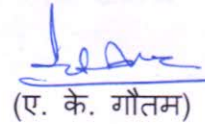 (ए. के. गौतम)